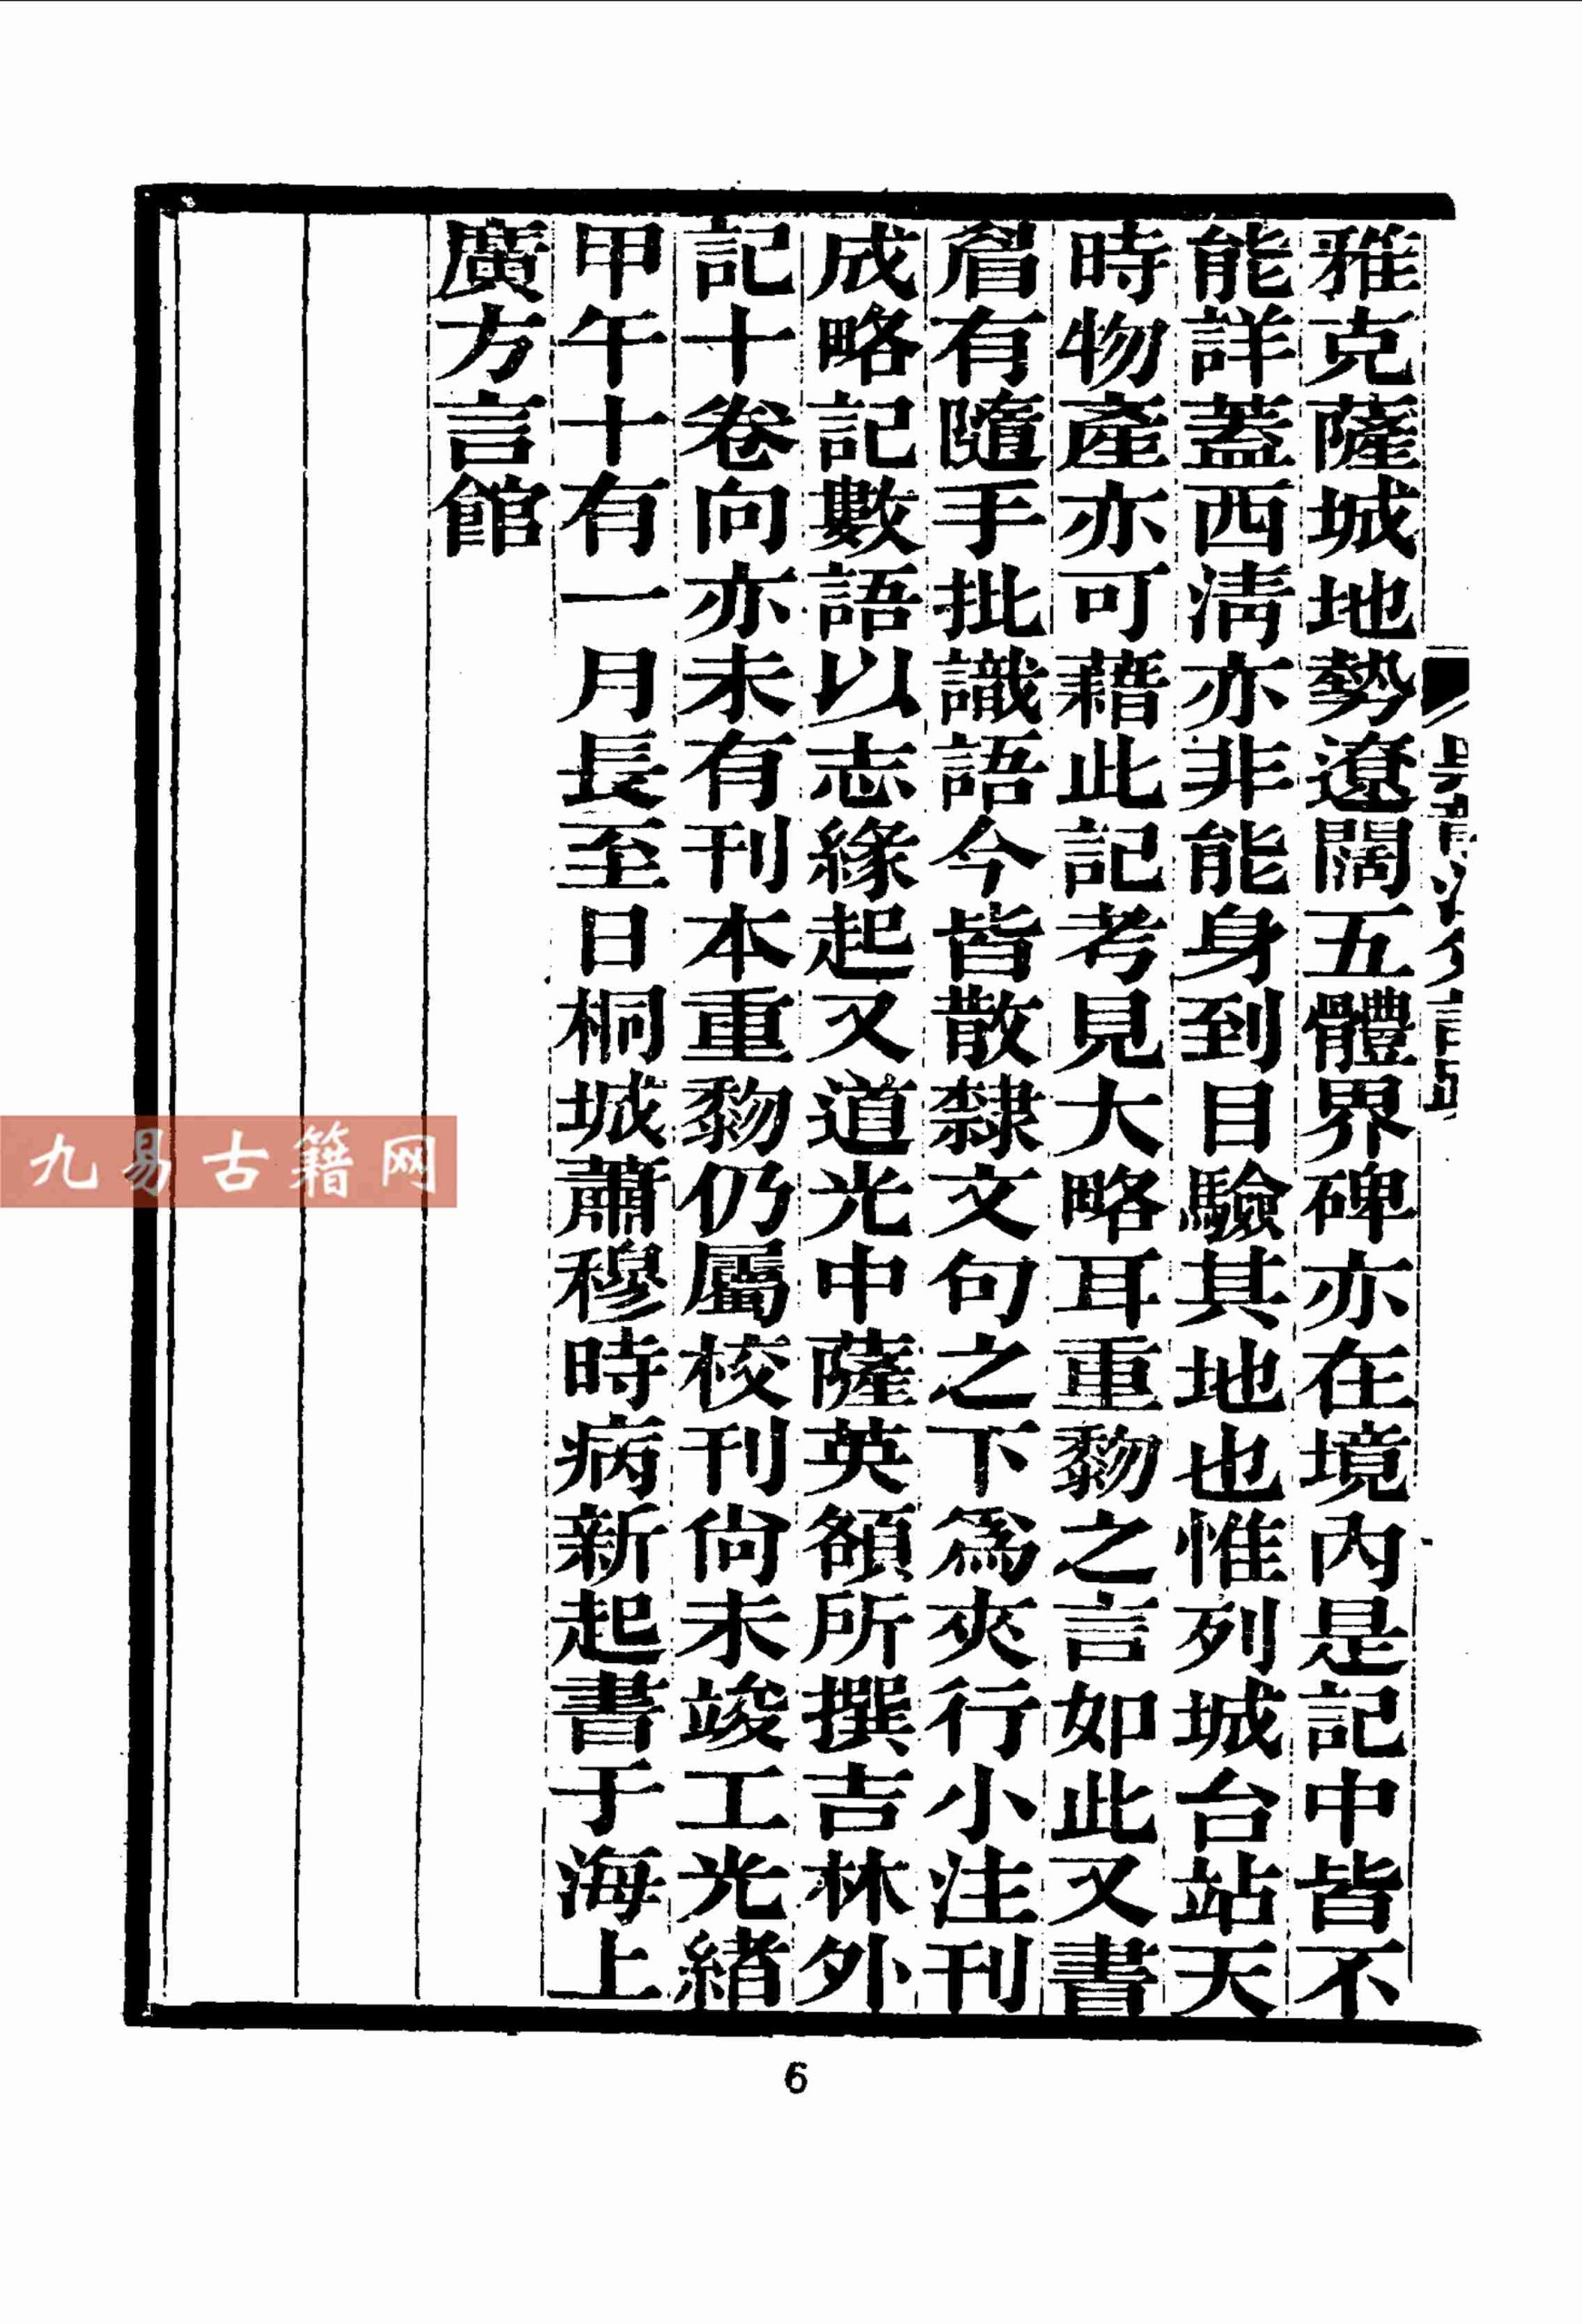 雅克薩城地勢遼闊五體界碑亦在境內是記中皆不
能詳蓋西淸亦非能身到目驗其地也惟列城台站天
時物產亦可藉此記考見大略耳重黝之言如此又書
眉有隨手批識語今皆散隸文句之下爲夾行小注刊
成略記數語以志緣起又道光中薩英額所撰吉林外
記十卷向亦未有刊本重黝仍屬校刊尙未竣工光緒
甲午十有一月長至日桐城蕭穆時病新起書于海上
廣方言館
九易古籍网
6